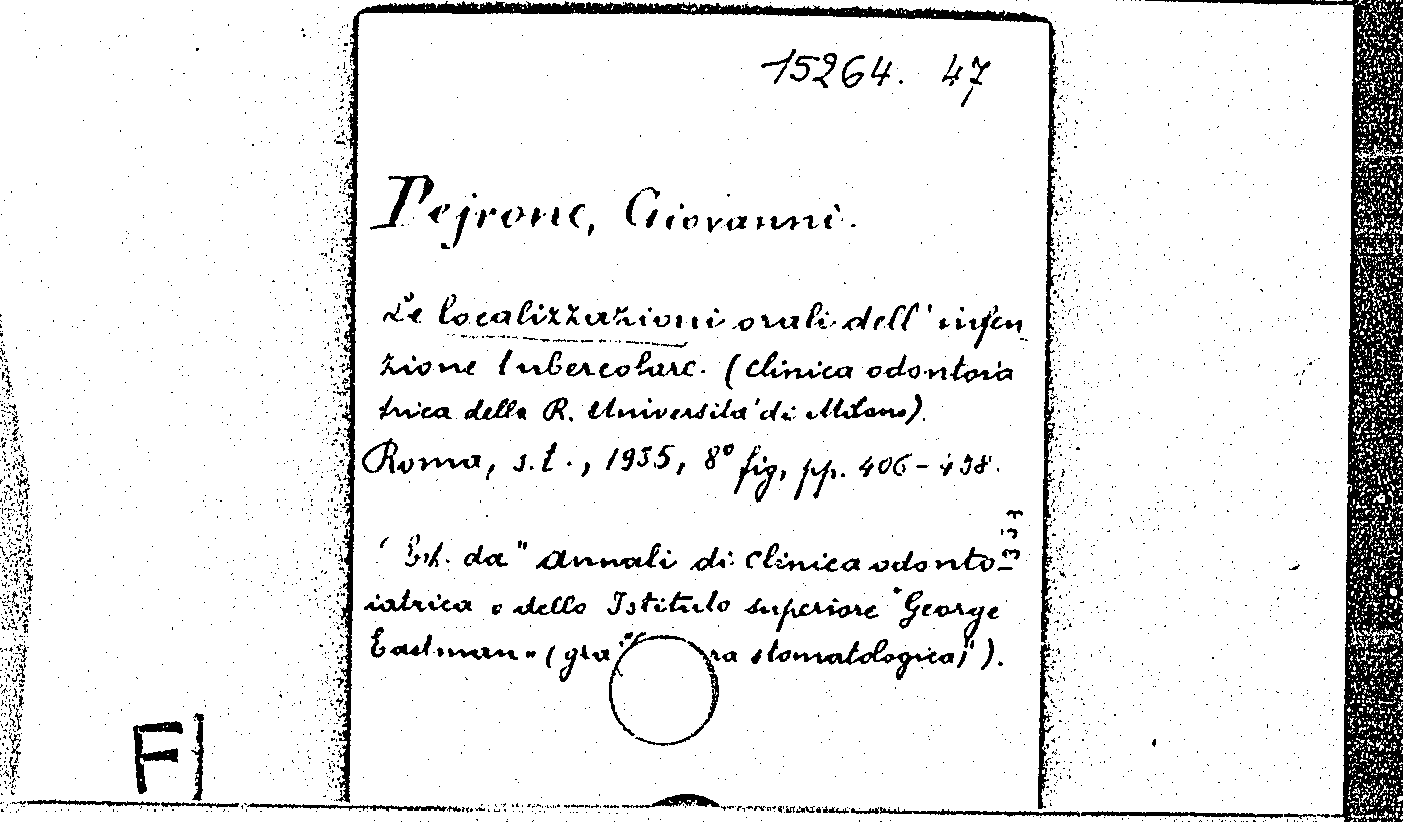 15264. 47
Pejrone, Giovanni.
Le localizzazioni orali dell' infen
zione tubercolare. (Clinica odontoia
trica della R. Università di Milano).
Roma, s.t., 1935, 8° fig, pp. 406-438.
Est. da "Annali di Clinica odonto-
iatrica e dello Istituto superiore "George
Eastman" ( ra stomatologica)").
F